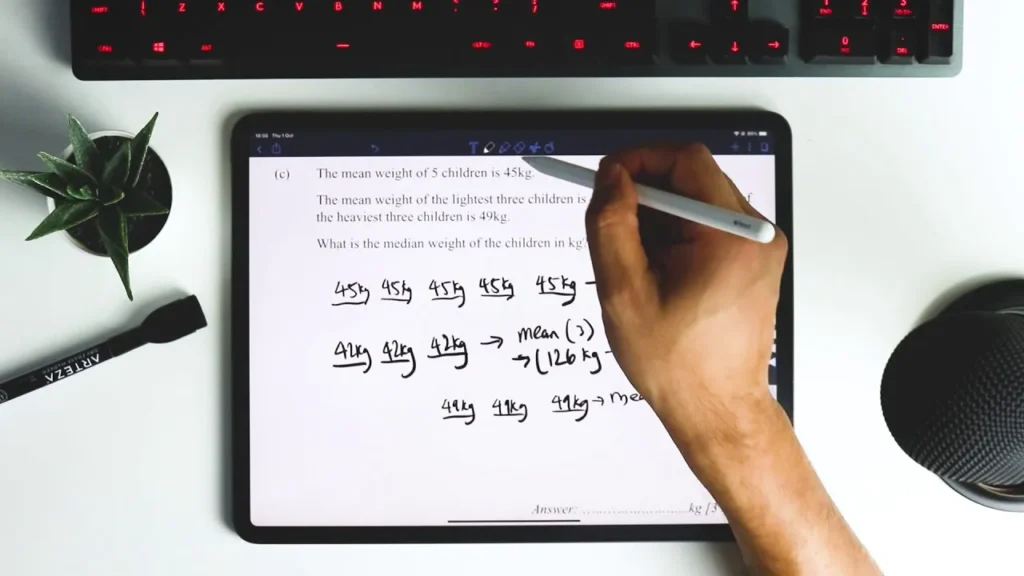 SHIFT Z X C V B N M SHIFT
CTRL ALT ALT GR FN CTRL 0 ENTER
(c) The mean weight of 5 children is 45kg.
The mean weight of the lightest three children is
the heaviest three children is 49kg.
What is the median weight of the children in kg?
45kg 45kg 45kg 45kg 45kg
42kg 42kg 42kg → mean (3)
→ (126 kg
49kg 49kg 49kg → mea
Answer: ........................kg [3
ARTEZA